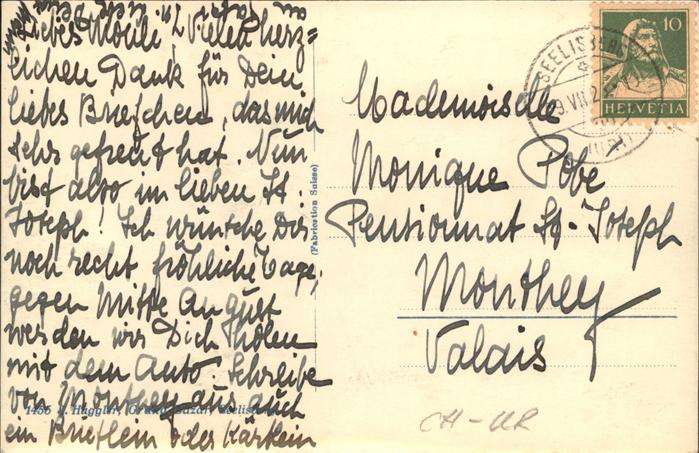 Liebes Moni! Vielen herz=
lichen Dank für Dein
liebes Briefchen, das mich
sehr gefreut hat. Nun
bist also im lieben St.
Joseph! Ich wünsche Dir
noch recht fröhliche Tage,
gegen Mitte August
werden wir Dich holen
mit dem Auto. Schreibe
von Monthey aus auch
ein Brieflein oder Kärtlein
(Fabrication Suisse)
Mademoiselle
Monique Pobé
Pensionnat St-Joseph
Monthey
Valais
CH-UR
10
HELVETIA
SEELISBERG